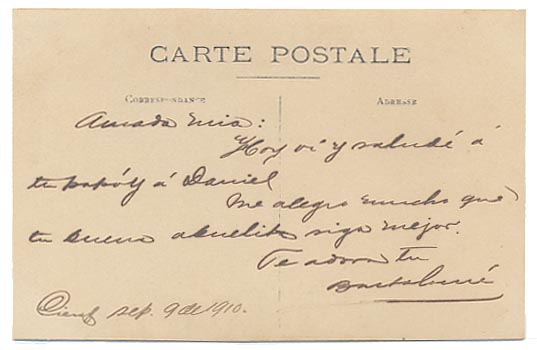 CARTE POSTALE
CORRESPONDANCE
ADRESSE
Amada mia:
Hoy vi y saludé á
tu papá y á Daniel
Me alegro mucho que
tu buena abuelita siga mejor.
Te adora tu
Bartolomé
Cienf sep. 9 de 1910.